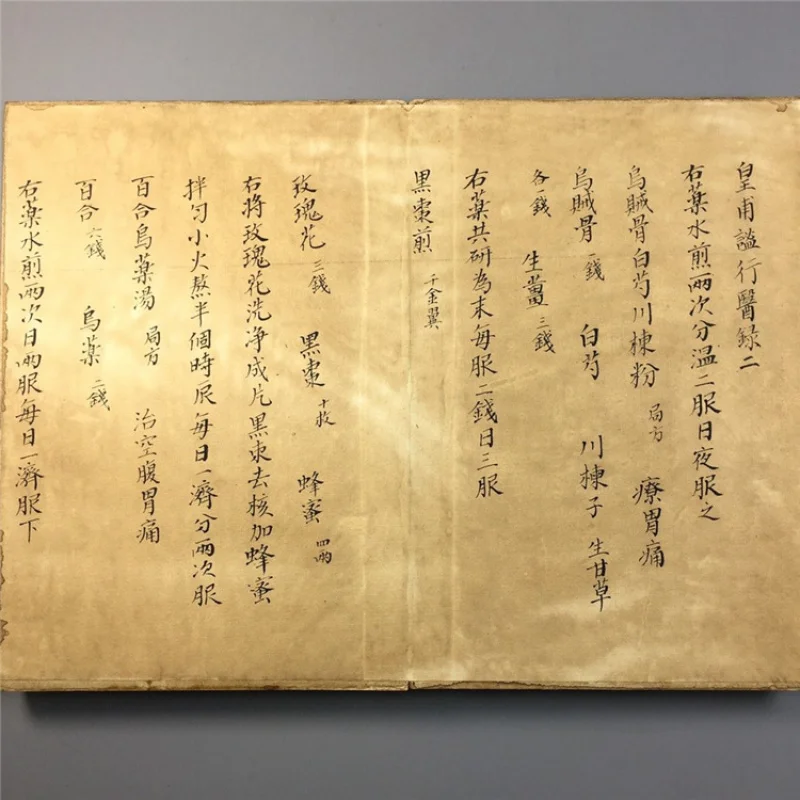 皇甫謐行醫録二
右薬水煎兩次分温二服日夜服之
烏賊骨白芍川楝粉 局方 療胃痛
烏賊骨 一錢 白芍 川楝子 生甘草
各一錢 生薑 三錢
右薬共研為末每服二錢日三服
黑棗煎 千金翼
玫瑰花 三錢 黑棗 十枚 蜂蜜 四兩
右將玫瑰花洗净成片黑枣去核加蜂蜜
拌匀小火熬半個時辰每日一濟分兩次服
百合烏薬湯 局方 治空腹胃痛
百合 六錢 烏薬 二錢
右薬水煎兩次日兩服每日一濟服下